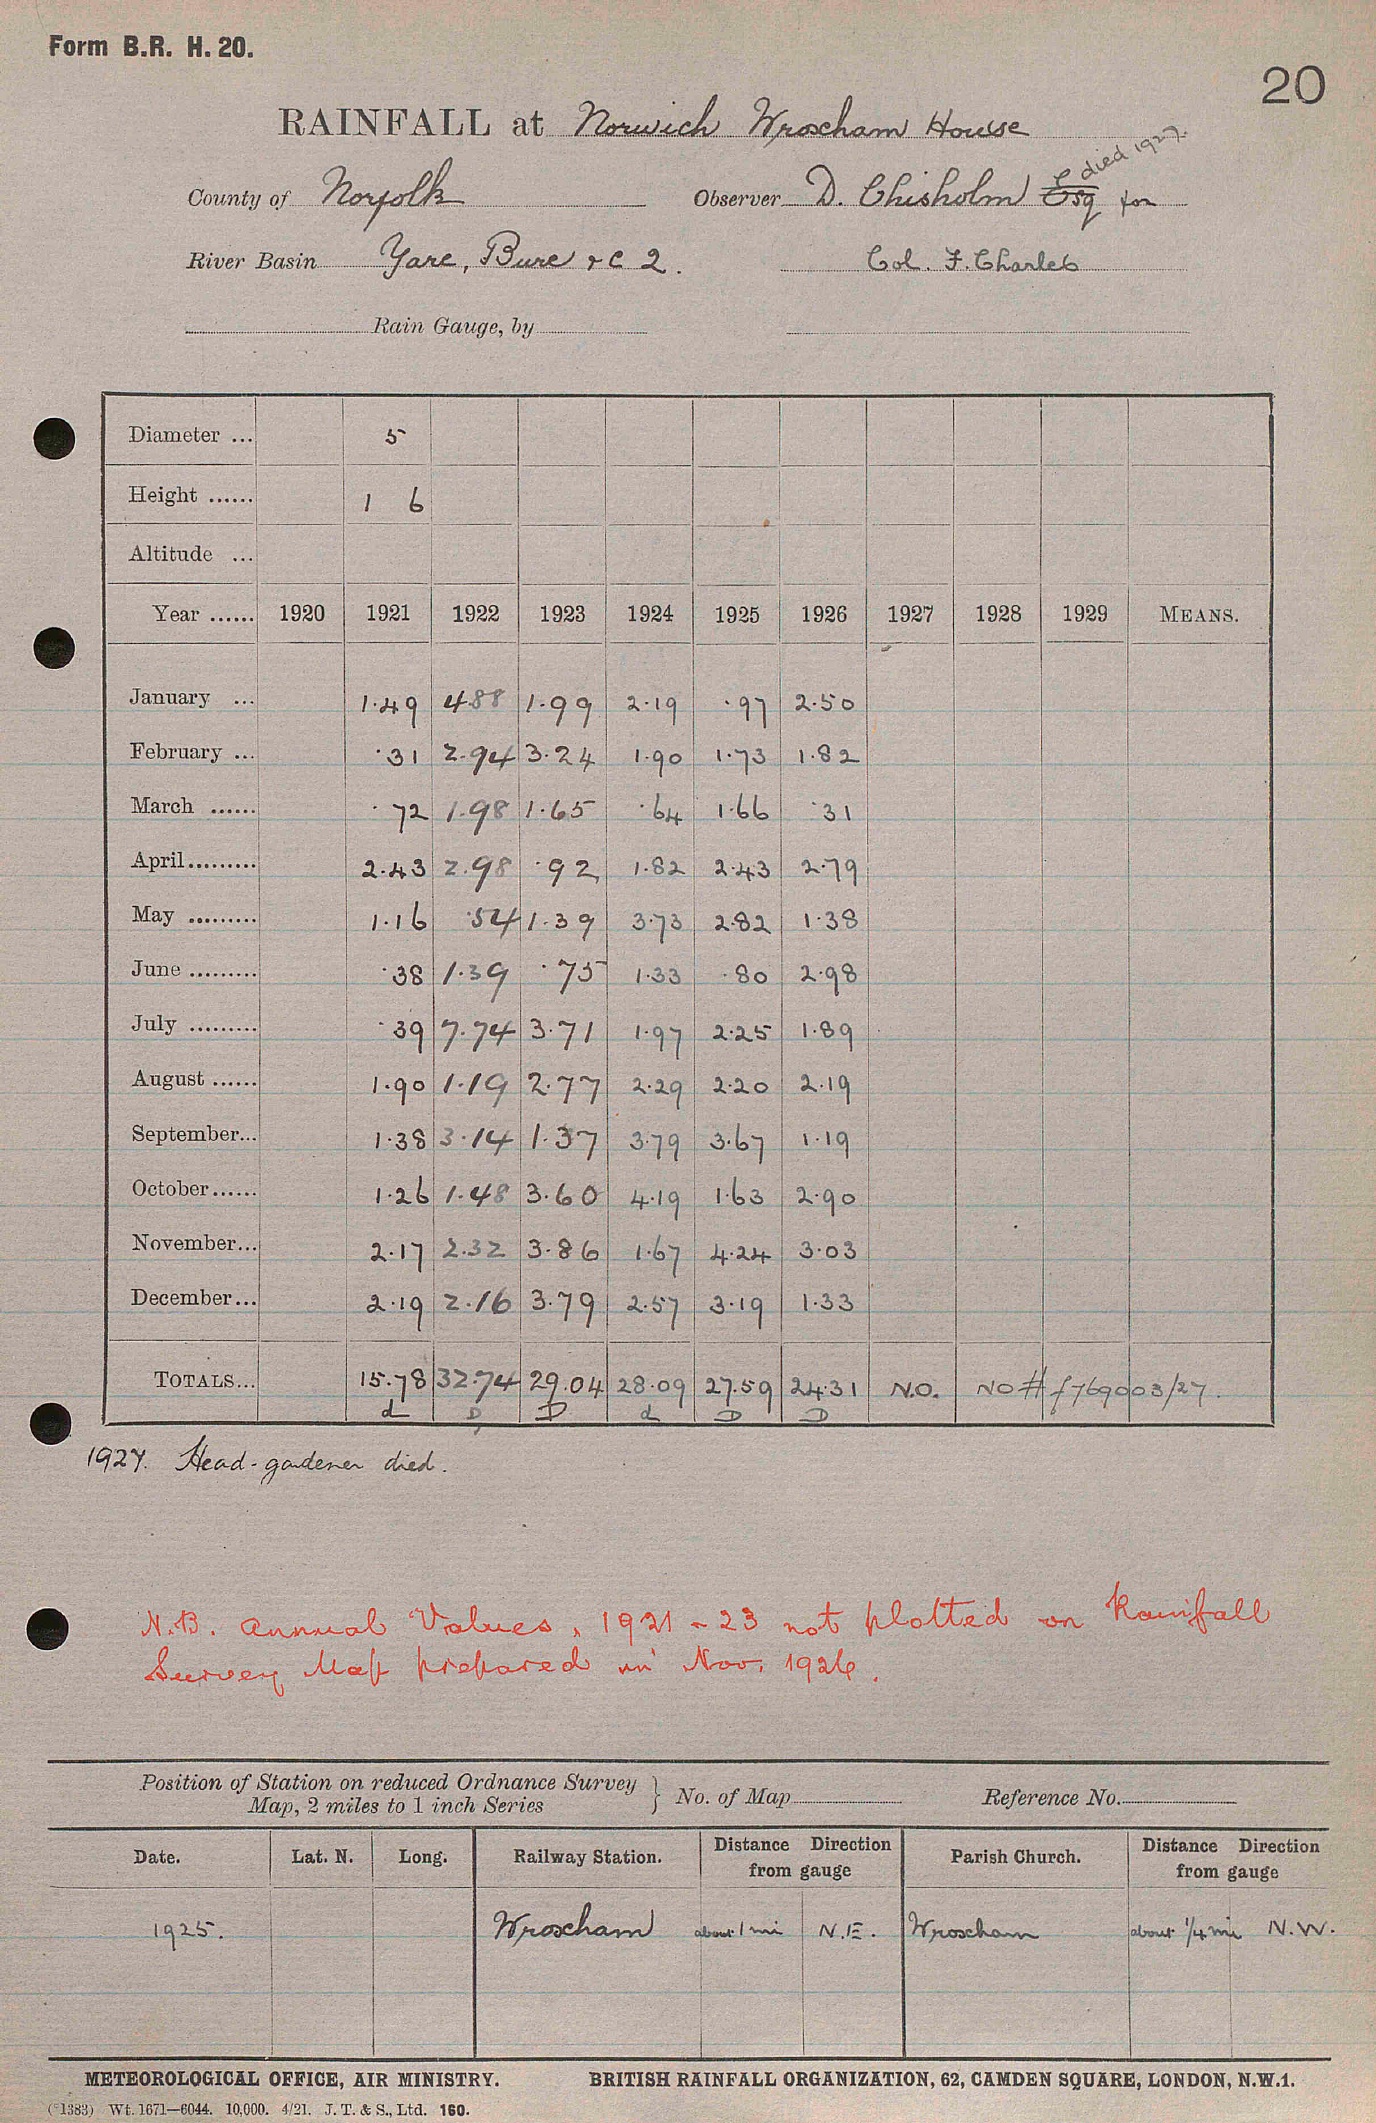 Form B.R. H. 20.
20
RAINFALL at Norwich Wroxham House
died 1927.
County of Norfolk Observer D. Chisholm Esq for
River Basin Yare, Bure & C 2. Col. F. Charles
Rain Gauge, by
Diameter ... 5
Height ...... 1 6
Altitude ...
Year ...... 1920 1921 1922 1923 1924 1925 1926 1927 1928 1929 MEANS.
January ... 1.49 4.88 1.99 2.19 .97 2.50
February ... .31 2.94 3.24 1.90 1.73 1.82
March ...... .72 1.98 1.65 .64 1.66 .31
April......... 2.43 2.98 .92 1.82 2.43 2.79
May ......... 1.16 .54 1.39 3.73 2.82 1.38
June ......... .38 1.39 .75 1.33 .80 2.98
July ......... .39 7.74 3.71 1.97 2.25 1.89
August ...... 1.90 1.19 2.77 2.29 2.20 2.19
September... 1.38 3.14 1.37 3.79 3.67 1.19
October...... 1.26 1.48 3.60 4.19 1.63 2.90
November... 2.17 2.32 3.86 1.67 4.24 3.03
December... 2.19 2.16 3.79 2.57 3.19 1.33
TOTALS... 15.78 32.74 29.04 28.09 27.59 24.31 N.O. NO # f769003/27.
d D D d D D
1927. Head-gardener died.
N.B. Annual Values, 1921-23 not plotted on Rainfall
Survey Map prepared in Nov. 1926.
Position of Station on reduced Ordnance Survey
Map, 2 miles to 1 inch Series } No. of Map Reference No.
Date. Lat. N. Long. Railway Station. Distance Direction from gauge Parish Church. Distance Direction from gauge
1925. Wroxham about 1 mi N.E. Wroxham about 1/4 mi N.W.
METEOROLOGICAL OFFICE, AIR MINISTRY. BRITISH RAINFALL ORGANIZATION, 62, CAMDEN SQUARE, LONDON, N.W.1.
(*1383) Wt. 1671—6044. 10,000. 4/21. J. T. & S., Ltd. 160.